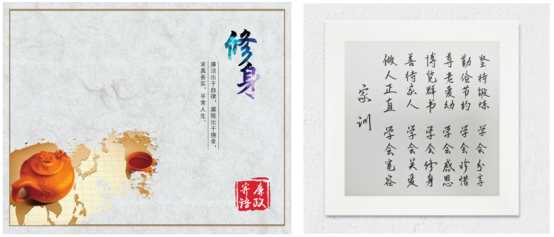 修身
廉洁出于自律，腐败出于侥幸，
求真务实，平常人生。
廉政
寄语
坚持锻炼 学会分享
勤俭节约 学会珍惜
尊老爱幼 学会感恩
博览群书 学会修身
善待家人 学会关爱
做人正直 学会宽容
家训